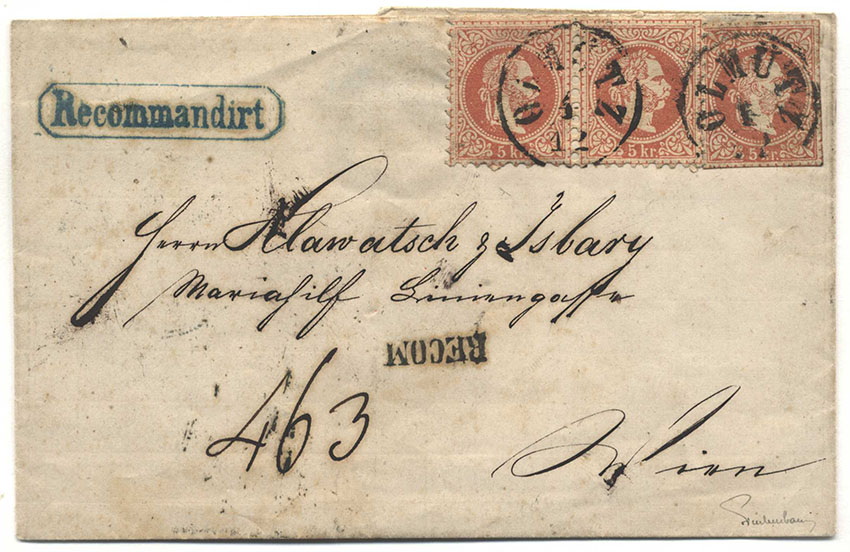 Recommandirt
5 kr. 5 kr. 5 kr.
OLMÜTZ
4
12
OLMÜTZ
Herrn Klawatsch & Isbary
Mariahilf Liniengasse
RECOM
463
Wien